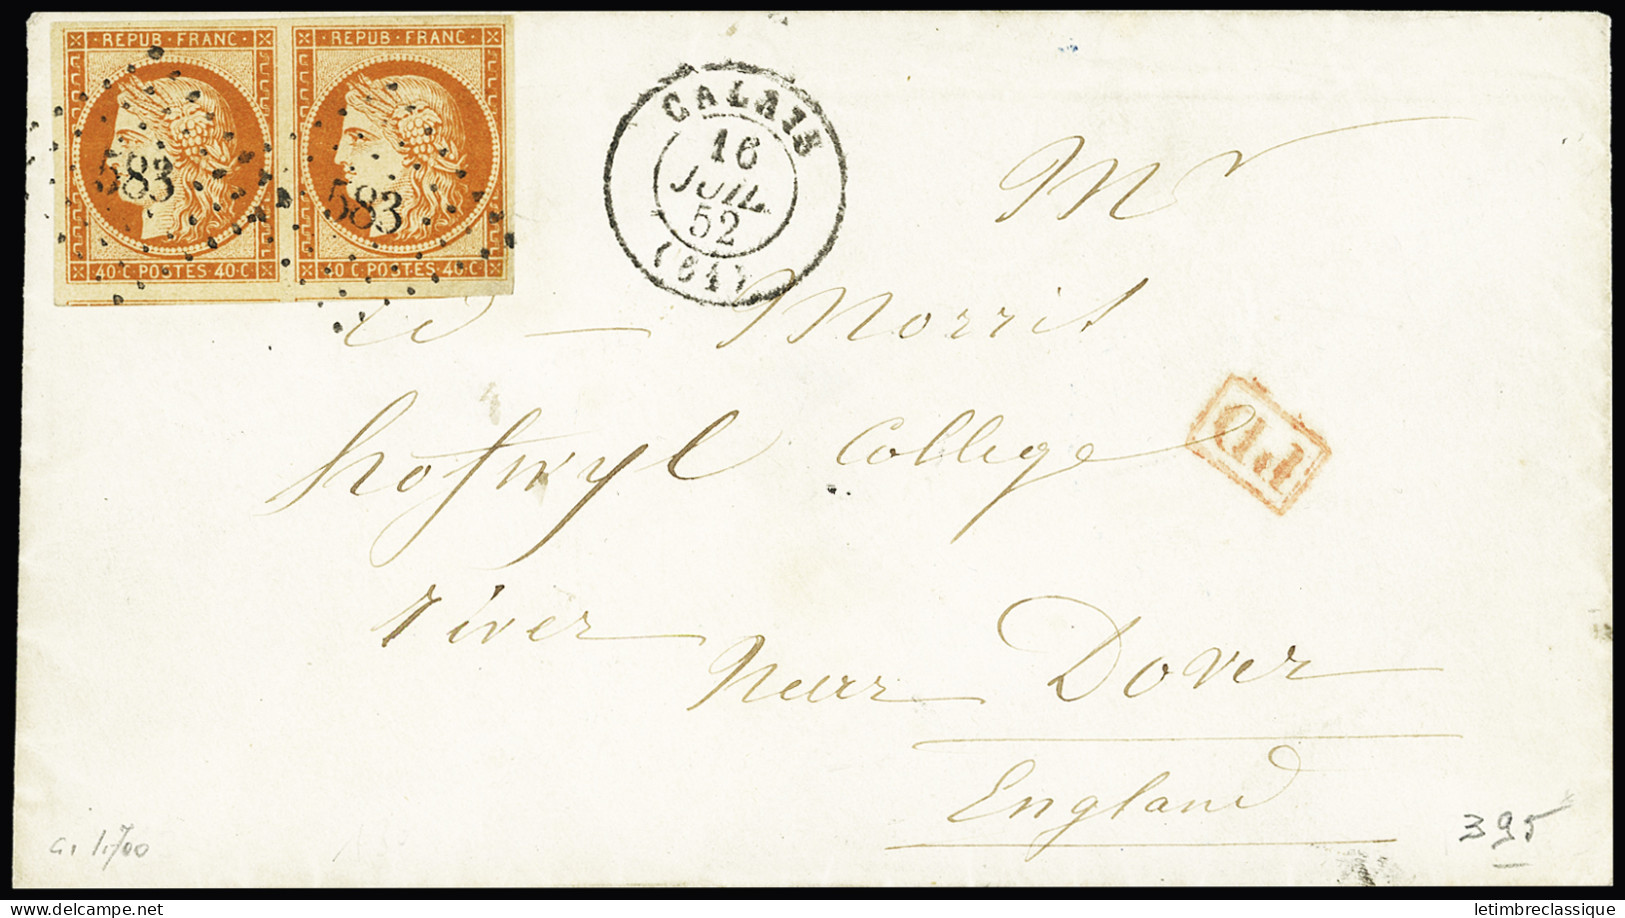 REPUB·FRANC·
REPUB·FRANC·
583
583
40·C·POSTES·40·C·
40·C·POSTES·40·C·
CALAIS
16
JUIL.
52
(61)
Mr
W — Morris
hofwyl College
P.D.
river
Near Dover
England
395
delcampe.net
letimbreclassique